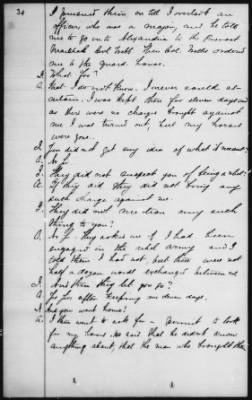 34
I pursued them on till I overtook an
officer who was a major, and he told
me to go on to Alexandria to the Provost
Marshal Col. Webb. Then Col. Wells ordered
me to the guard house.
Q. What for?
A. That I do not know. I never could as-
certain. I was kept there for eleven days and
as there were no charges brought against
me I was turned out, but my horses
were gone.
Q. You did not get any idea of what it meant?
A. No Sir.
Q. They did not suspect you of being a
A. If they did they did not bring any
such charge against me.
Q. They did not mention any such
thing to you?
A. No Sir. They asked me if I had been
engaged in the rebel army and I
told them I had not, but there were not
half a dozen words exchanged between us.
Q. And then they let you go?
A. Yes Sir, after keeping me eleven days.
Q. And you went home?
A. I then went to ask for a permit to look
for my horses. He said that he didn't know
anything about that, the man who brought them